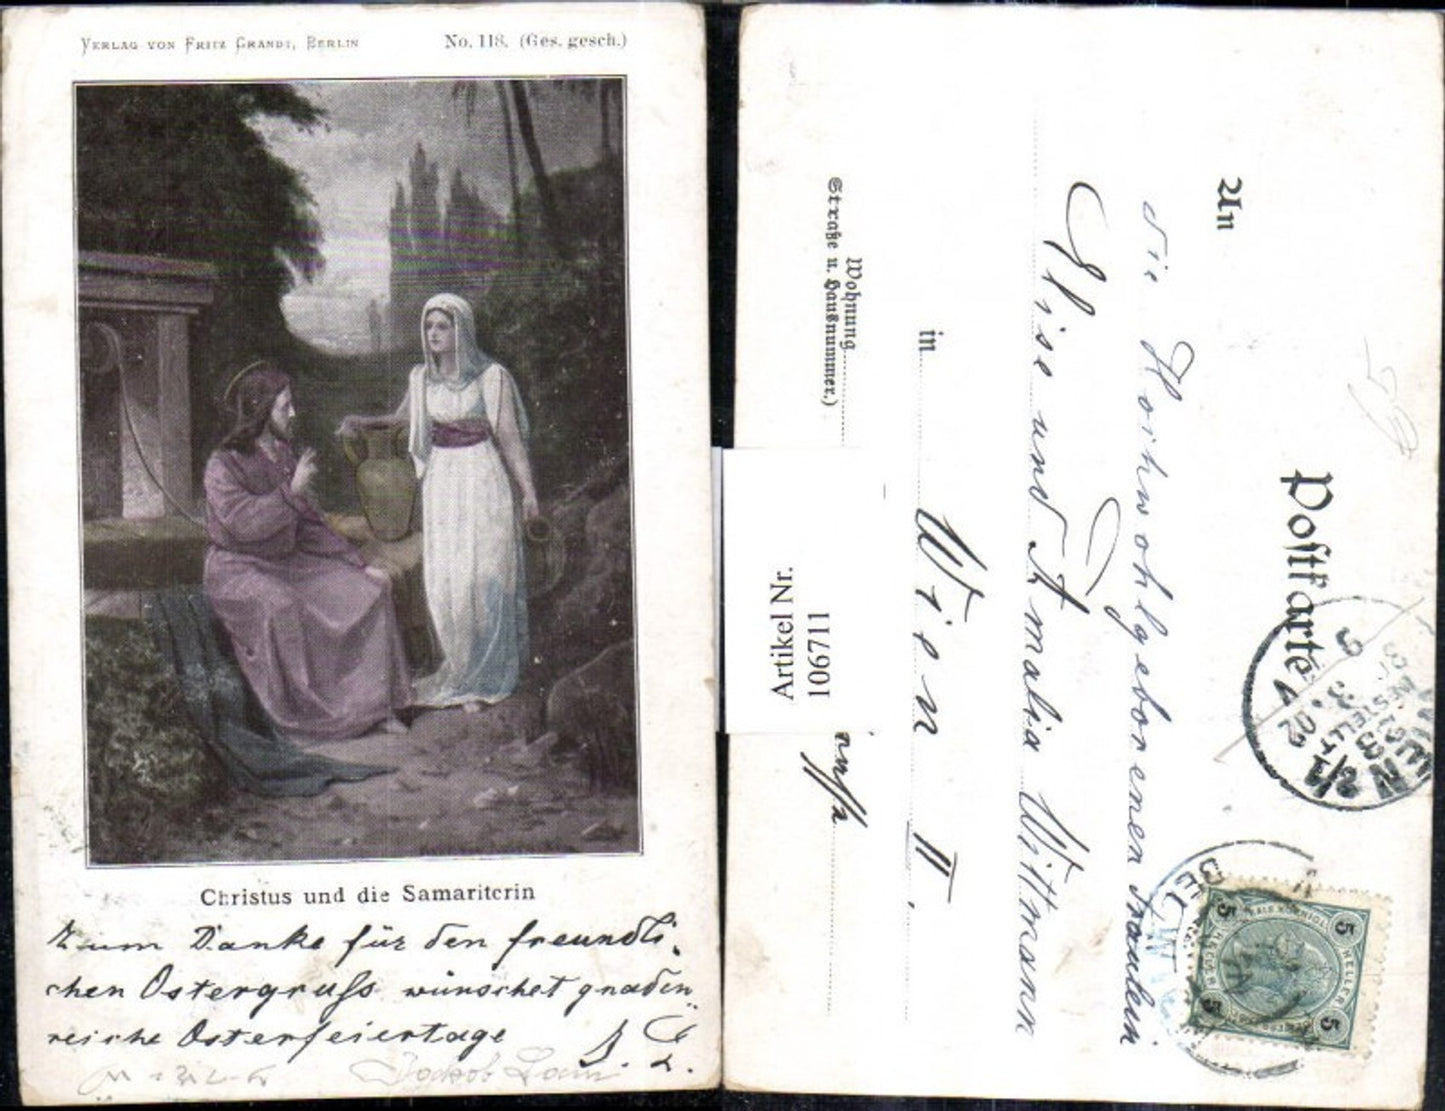 Verlag von Fritz Grandt, Berlin
No. 118. (Ges. gesch.)
Christus und die Samariterin
Zum Danke für den freundli-
chen Ostergruß wünschet gnaden
reiche Osterfeiertage
Postkarte
An
die Hochwohlgeborenen Fräulein
Elise und Amalia Wittmann
in Wien II.
Wohnung
(Straße u. Hausnummer.)
Artikel Nr.
106711
WIEN
BESTELLT
5 HELLER 5
5 5